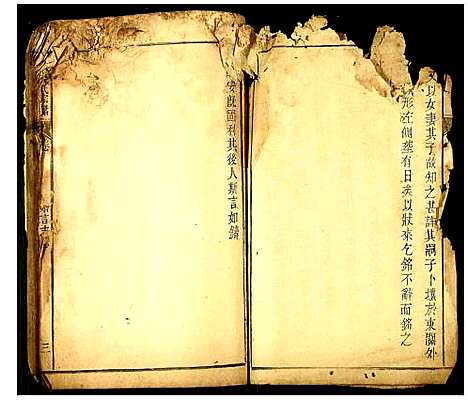 以女妻其子故知之甚詳其嗣子卜壤於東關外
形左側塟有日矣以狀來乞銘不辭而銘之
安旣固利其後人斯言如鑄
三